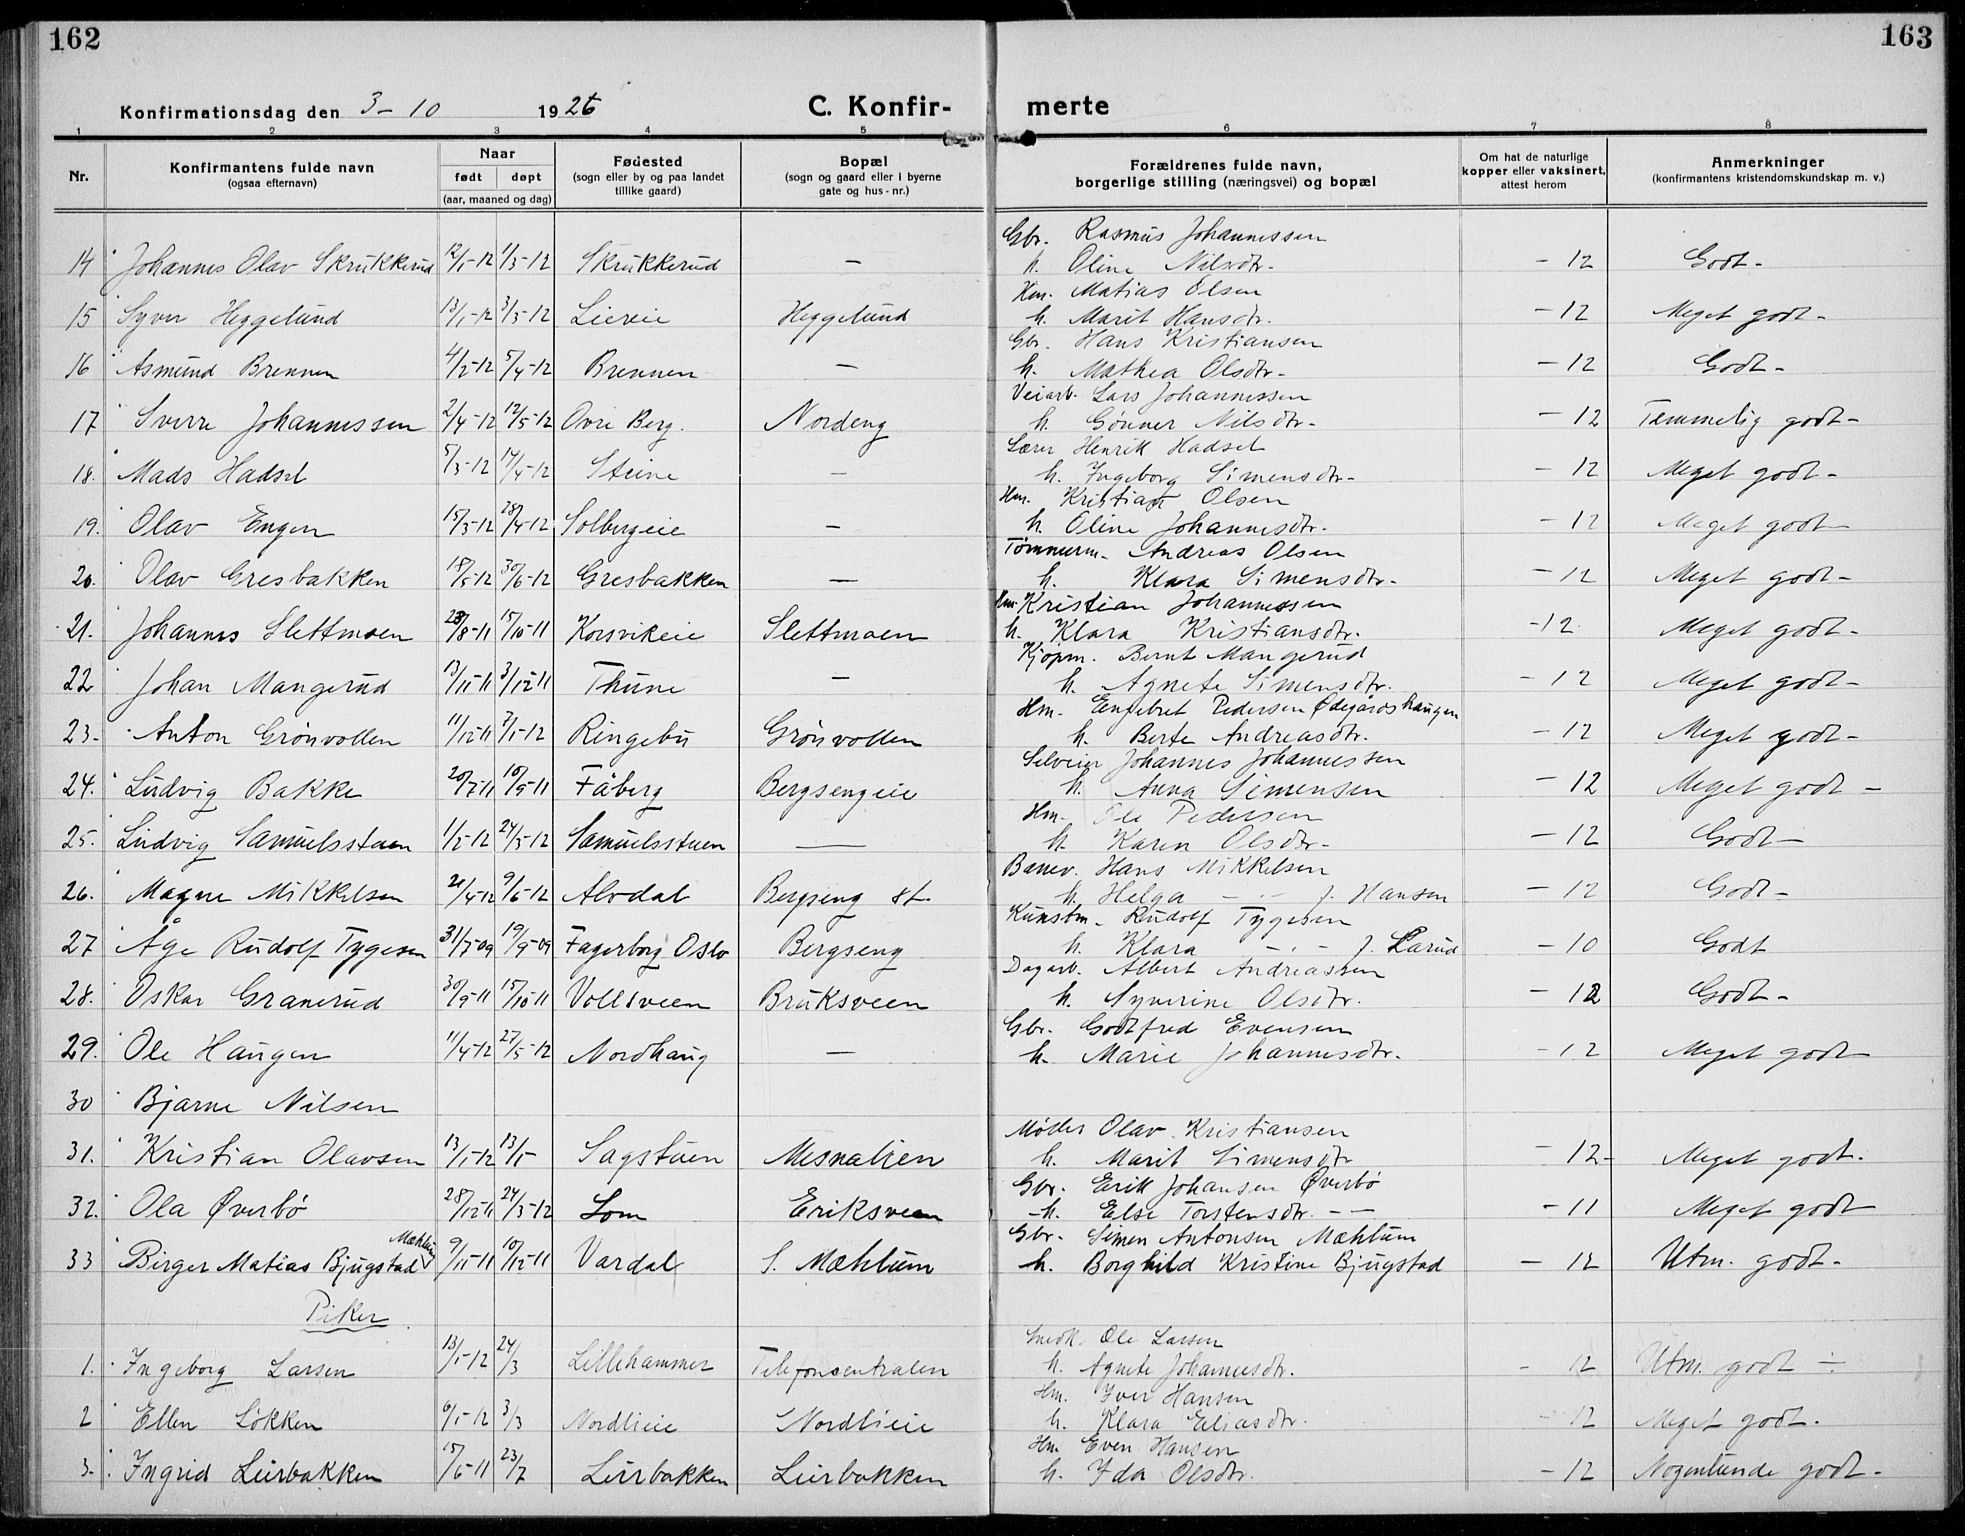 162
163
Konfirmationsdag den 3 - 10 1926
C. Konfir-
merte
1 2 3 4 5 6 7 8
Nr.
Konfirmantens fulde navn
(ogsaa efternavn)
Naar
født døpt
(aar, maaned og dag)
Fødested
(sogn eller by og paa landet
tillike gaard)
Bopæl
(sogn og gaard eller i byerne
gate og hus-nr.)
Forældrenes fulde navn,
borgerlige stilling (næringsvei) og bopæl
Om hat de naturlige
kopper eller vaksinert,
attest herom
Anmerkninger
(konfirmantens kristendomskundskap m. v.)
Gbr. Rasmus Johannessen
14 Johannes Olav Skrukkerud 12/1-12 1/3-12 Skrukkerud — h. Oline Nilsdtr. -12 Godt-
Hm. Matias Olsen
15 Syver Heggelund 13/1-12 3/3-12 Lieeie Heggelund h. Marit Hansdtr. -12 Meget godt-
Gbr. Hans Kristiansen
16 Asmund Brennen 4/2-12 5/4-12 Brennen — h. Mathea Olsdtr- -12 Godt-
Veiarb. Lars Johannessen
17 Sverre Johannessen 2/4-12 12/5-12 Øvre Berg. Nordeng h. Gunner Nilsdtr- -12 Temmelig godt-
Lærer Henrik Hadsel
18. Mads Hadsel 5/3-12 14/4-12 Steine — h. Ingeborg Simensdtr- -12 Meget godt-
Hm. Kristian Olsen
19. Olav Engen 15/3-12 28/4-12 Solbergeie — h. Oline Johannesdtr. -12 Meget godt
Tømmerm- Andreas Olsen
20. Olav Gresbakken 18/5-12 30/6-12 Gresbakken — h. Klara Simensdtr- -12 Meget godt-
Hm. Kristian Johannessen
21. Johannes Slettmoen 28/8-11 15/10-11 Korsvikeie Slettmoen h. Klara Kristiansdtr. -12 Meget godt-
Kjøpm. Bernt Mangerud
22 Johan Mangerud 13/11-11 3/12-11 Thune — h. Agnete Simensdtr. -12 Meget godt-
Hm- Engebret Pedersen Ødegårdshaugen
23- Anton Grønvollen 11/12-11 7/1-12 Ringebu Grønvollen h. Berte Andreasdtr. -12 Meget godt-
Selveier Johannes Johannessen
24. Ludvig Bakke 20/7-11 10/9-11 Fåberg Bergsengeie h. Anna Simensen -12 Meget godt-
Hm- Ole Pedersen
25. Ludvig Samuelsstuen 1/2-12 24/3-12 Samuelsstuen — h. Karen Olsdtr- -12 Godt-
Banev. Hans Mikkelsen
26. Magne Mikkelsen 21/4-12 9/6-12 Alvdal Bergseng st. h. Helga - - f. Hansen -12 Godt-
Kunstm- Rudolf Tygesen
27 Åge Rudolf Tygesen 31/7-09 19/9-09 Fagerborg Oslo Bergseng h. Klara - - f. Larud -10 Godt
Dagarb. Albert Andreassen
28. Oskar Granerud 30/9-11 15/10-11 Vollsveen Bruksveen h. Syverine Olsdtr. -12 Godt-
Gbr. Godtfred Evensen
29. Ole Haugen 11/4-12 27/5-12 Nordhaug — h. Marie Johannesdtr. -12 Meget godt
30 Bjarne Nilsen
Møller Olav Kristiansen
31. Kristian Olavsen 13/1-12 13/1- Sagstuen Mesnalien h. Marit Simensdtr -12- Meget godt.
Gbr. Erik Johansen Øverbø
32. Ola Øverbø 28/12-11 24/3-12 Lom Eriksveen h. Else Torstensdtr. - - -11 Meget godt
Mæhlum
Gbr- Simen Antonsen Mæhlum
33 Birger Matias Bjugstad 9/11-11 10/12-11 Vardal S. Mæhlum h. Borghild Kristine Bjugstad -12 Utm. godt-
Piker
Snedk. Ole Larsen
1. Ingeborg Larsen 13/1-12 24/3 Lillehammer Telefoncentralen h. Agnete Johannesdtr. -12 Utm. godt -
Hm. Iver Hansen
2 Ellen Løkken 6/1-12 3/3 Nordlieie Nordlieie h. Klara Eliasdtr. -12 Meget godt.
Hm Even Hansen
3. Ingrid Lurbakken 15/6-11 23/7 Lurbakken Lurbakken h. Ida Olsdtr. -12 Nogenlunde godt-